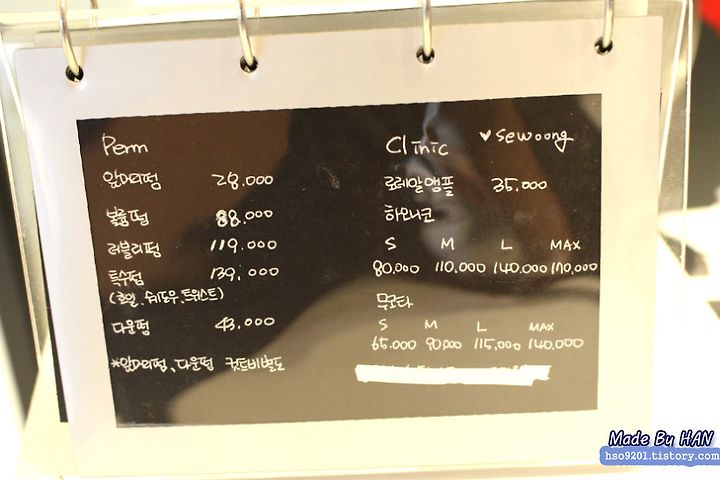 Perm
앞머리펌 28.000
볼륨펌 88.000
러블리펌 119.000
특수펌 139.000
(호일, 쉐도우, 트위스트)
다운펌 43.000
*앞머리펌, 다운펌 컷트비별도
Clinic ♥sewoong
로레알앰플 35.000
하오니코
S M L MAX
80.000 110.000 140.000 170.000
무코타
S M L MAX
65.000 90.000 115.000 140.000
Made By HAN
hso9201.tistory.com